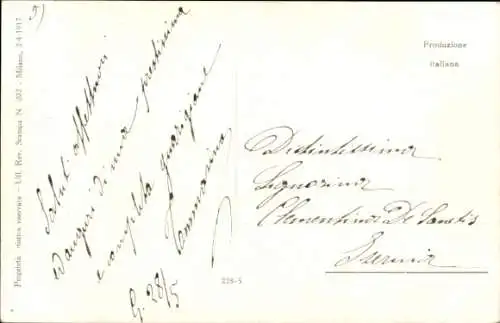 Proprietà artistica riservata - Uff. Rev. Stampa N. 202 - Milano, 2-4-1917
Saluti affettuosi
d'auguri di una prestissima
e completa guarigione
Commarino
G. 28/5
Produzione
italiana
Distintissima
Signorina
Clementina De Sanctis
Isernia
228-5